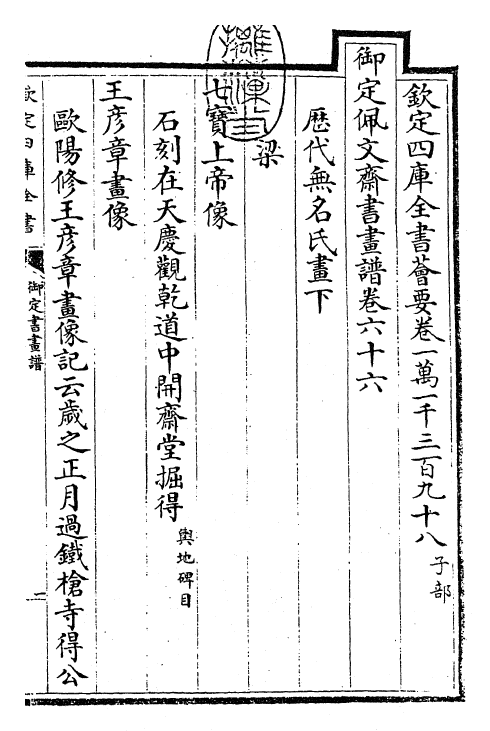 欽定四庫全書薈要卷一萬一千三百九十八 子部
御定佩文齋書畫譜卷六十六
歷代無名氏畫下
梁
七寶上帝像
石刻在天慶觀乾道中開齋堂掘得 輿地碑目
王彥章畫像
歐陽修王彥章畫像記云歲之正月過鐵槍寺得公
欽定四庫全書
御定書畫譜